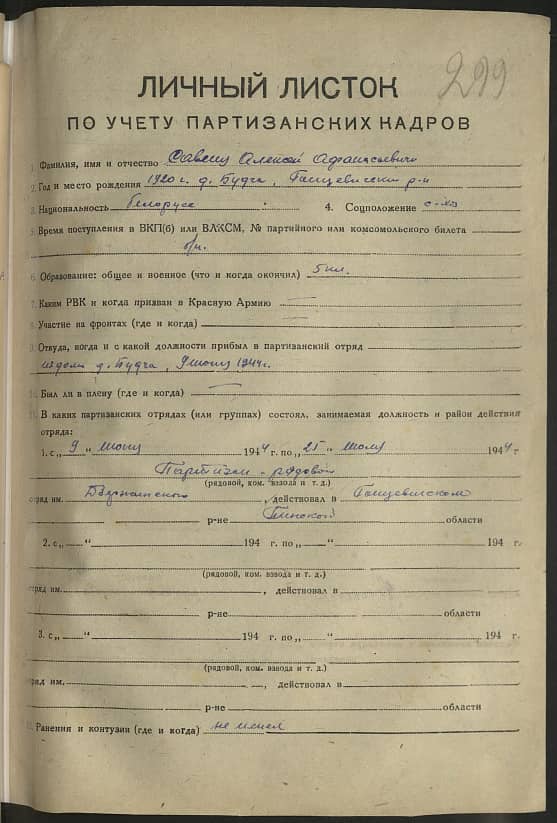 299
ЛИЧНЫЙ ЛИСТОК
ПО УЧЕТУ ПАРТИЗАНСКИХ КАДРОВ
1. Фамилия, имя и отчество Савеня Алексей Афанасьевич
2. Год и место рождения 1920 г. д. Будча, Ганцевичский р-н
3. Национальность белорусс 4. Соцположение с-хоз
5. Время поступления в ВКП(б) или ВЛКСМ, № партийного или комсомольского билета
б/п.
6. Образование: общее и военное (что и когда окончил) 5 кл.
7. Каким РВК и когда призван в Красную Армию —
8. Участие на фронтах (где и когда) —
9. Откуда, когда и с какой должности прибыл в партизанский отряд
из дома д. Будча, 9 июня 1944 г.
10. Был ли в плену (где и когда) —
11. В каких партизанских отрядах (или группах) состоял, занимаемая должность и район действия
отряда:
1. с „ 9 " июня 1944 г. по „ 25 " июля 1944 г
Партизан - рядовой
(рядовой, ком. взвода и т. д.)
отряд им. Дзержинского, действовал в Ганцевичском
р-не Пинской области
2. с „ — " 194 г. по „ — " 194 г.
(рядовой, ком. взвода и т. д.)
отряд им. , действовал в
р-не области
3. с „ — " 194 г. по „ — " 194 г.
(рядовой, ком. взвода и т. д.)
отряд им. , действовал в
р-не области
12. Ранения и контузии (где и когда) не имел